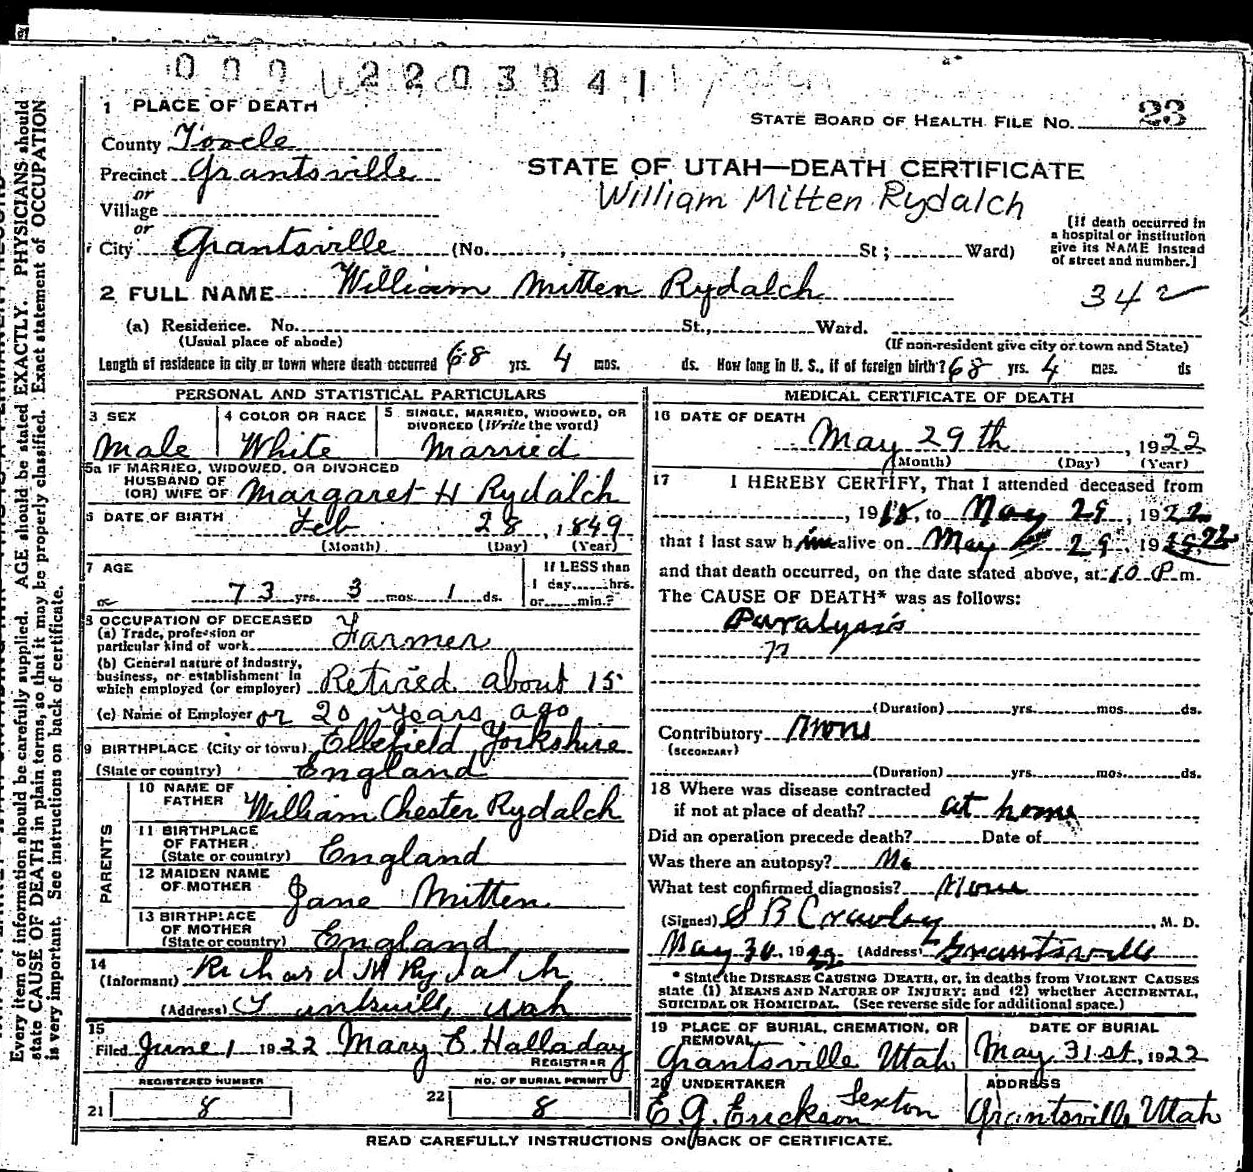 000 2203841
1 PLACE OF DEATH
STATE BOARD OF HEALTH FILE NO. 23
County Tooele
Precinct Grantsville
STATE OF UTAH—DEATH CERTIFICATE
or
William Mitten Rydalch
Village
or
City Grantsville (No. , St ; Ward)
[If death occurred in
a hospital or institution
give its NAME instead
of street and number.]
2 FULL NAME William Mitten Rydalch
342
(a) Residence. No. St., Ward.
(Usual place of abode) (If non-resident give city or town and State)
Length of residence in city or town where death occurred 68 yrs. 4 mos. ds. How long in U. S., if of foreign birth? 68 yrs. 4 mos. ds
PERSONAL AND STATISTICAL PARTICULARS
3 SEX
Male
4 COLOR OR RACE
White
5 SINGLE, MARRIED, WIDOWED, OR
DIVORCED (Write the word)
Married
5a IF MARRIED, WIDOWED, OR DIVORCED
HUSBAND OF
(OR) WIFE OF Margaret H Rydalch
6 DATE OF BIRTH Feb 28, 1849
(Month) (Day) (Year)
7 AGE
73 yrs. 3 mos. 1 ds.
If LESS than
1 day, hrs.
or min.?
8 OCCUPATION OF DECEASED
(a) Trade, profession or
particular kind of work Farmer
(b) General nature of industry,
business, or establishment in
which employed (or employer) Retired about 15
(c) Name of Employer or 20 years ago
9 BIRTHPLACE (City or town) Ellefield Yorkshire
(State or country) England
PARENTS
10 NAME OF
FATHER William Chester Rydalch
11 BIRTHPLACE
OF FATHER
(State or country) England
12 MAIDEN NAME
OF MOTHER Jane Mitten
13 BIRTHPLACE
OF MOTHER
(State or country) England
14
(Informant) Richard M Rydalch
(Address) Utah
15
Filed June 1 1922 Mary E. Halladay
REGISTRAR
REGISTERED NUMBER
21 8
NO. OF BURIAL PERMIT
22 8
MEDICAL CERTIFICATE OF DEATH
16 DATE OF DEATH
May 29th, 1922
(Month) (Day) (Year)
17 I HEREBY CERTIFY, That I attended deceased from
, 1918, to May 29, 1922
that I last saw him alive on May 29, 19 22
and that death occurred, on the date stated above, at 10 P.m.
The CAUSE OF DEATH* was as follows:
Paralysis
(Duration) yrs. mos. ds.
Contributory None
(SECONDARY)
(Duration) yrs. mos. ds.
18 Where was disease contracted
if not at place of death? at home
Did an operation precede death? Date of
Was there an autopsy? No
What test confirmed diagnosis? None
(Signed) S B Crawley, M. D.
May 30, 1922 (Address) Grantsville
* State the DISEASE CAUSING DEATH, or, in deaths from VIOLENT CAUSES
state (1) MEANS AND NATURE OF INJURY; and (2) whether ACCIDENTAL,
SUICIDAL OR HOMICIDAL. (See reverse side for additional space.)
19 PLACE OF BURIAL, CREMATION, OR
REMOVAL
Grantsville Utah
DATE OF BURIAL
May 31st, 1922
20 UNDERTAKER
E. G. Erickson Sexton
ADDRESS
Grantsville Utah
READ CAREFULLY INSTRUCTIONS ON BACK OF CERTIFICATE.
Every item of information should be carefully supplied. AGE should be stated EXACTLY. PHYSICIANS should
state CAUSE OF DEATH in plain terms, so that it may be properly classified. Exact statement of OCCUPATION
is very important. See instructions on back of certificate.